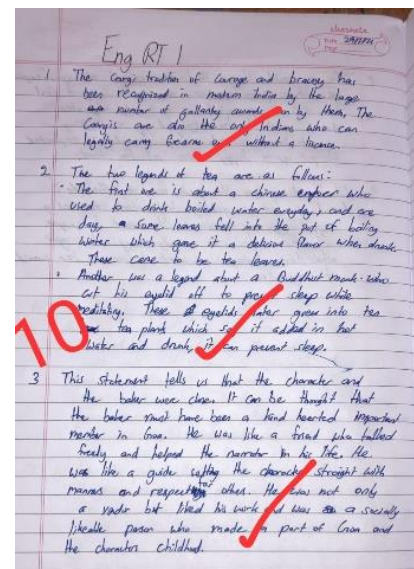 Eng RT 1
1 The Coorgi tradition of Courage and bravery has
been recognized in modern India by the large
number of gallantry awards won by them. The
Coorgis are also the only Indians who can
legally carry firearms without a licence.
2 The two legends of tea are as follows:
The first one is about a chinese emperor who
used to drink boiled water everyday, and one
day, some leaves fell into the pot of boiling
water which gave it a delicious flavor when drunk.
These came to be tea leaves.
Another was a legend about a Buddhist monk who
cut his eyelid off to prevent sleep while
meditating. These eyelids later grew into ten
tea plants which so if added in hot
water and drunk, it can prevent sleep.
10
3 This statement tells us that the character and
the baker were close. It can be thought that
the baker must have been a kind hearted important
member in Goa. He was like a friend who talked
freely and helped the narrator in his life. He
was like a guide the character straight with
manners and respect for others. He was not only
a but liked his work and was a socially
likeable person who made part of Goa and
the characters childhood.